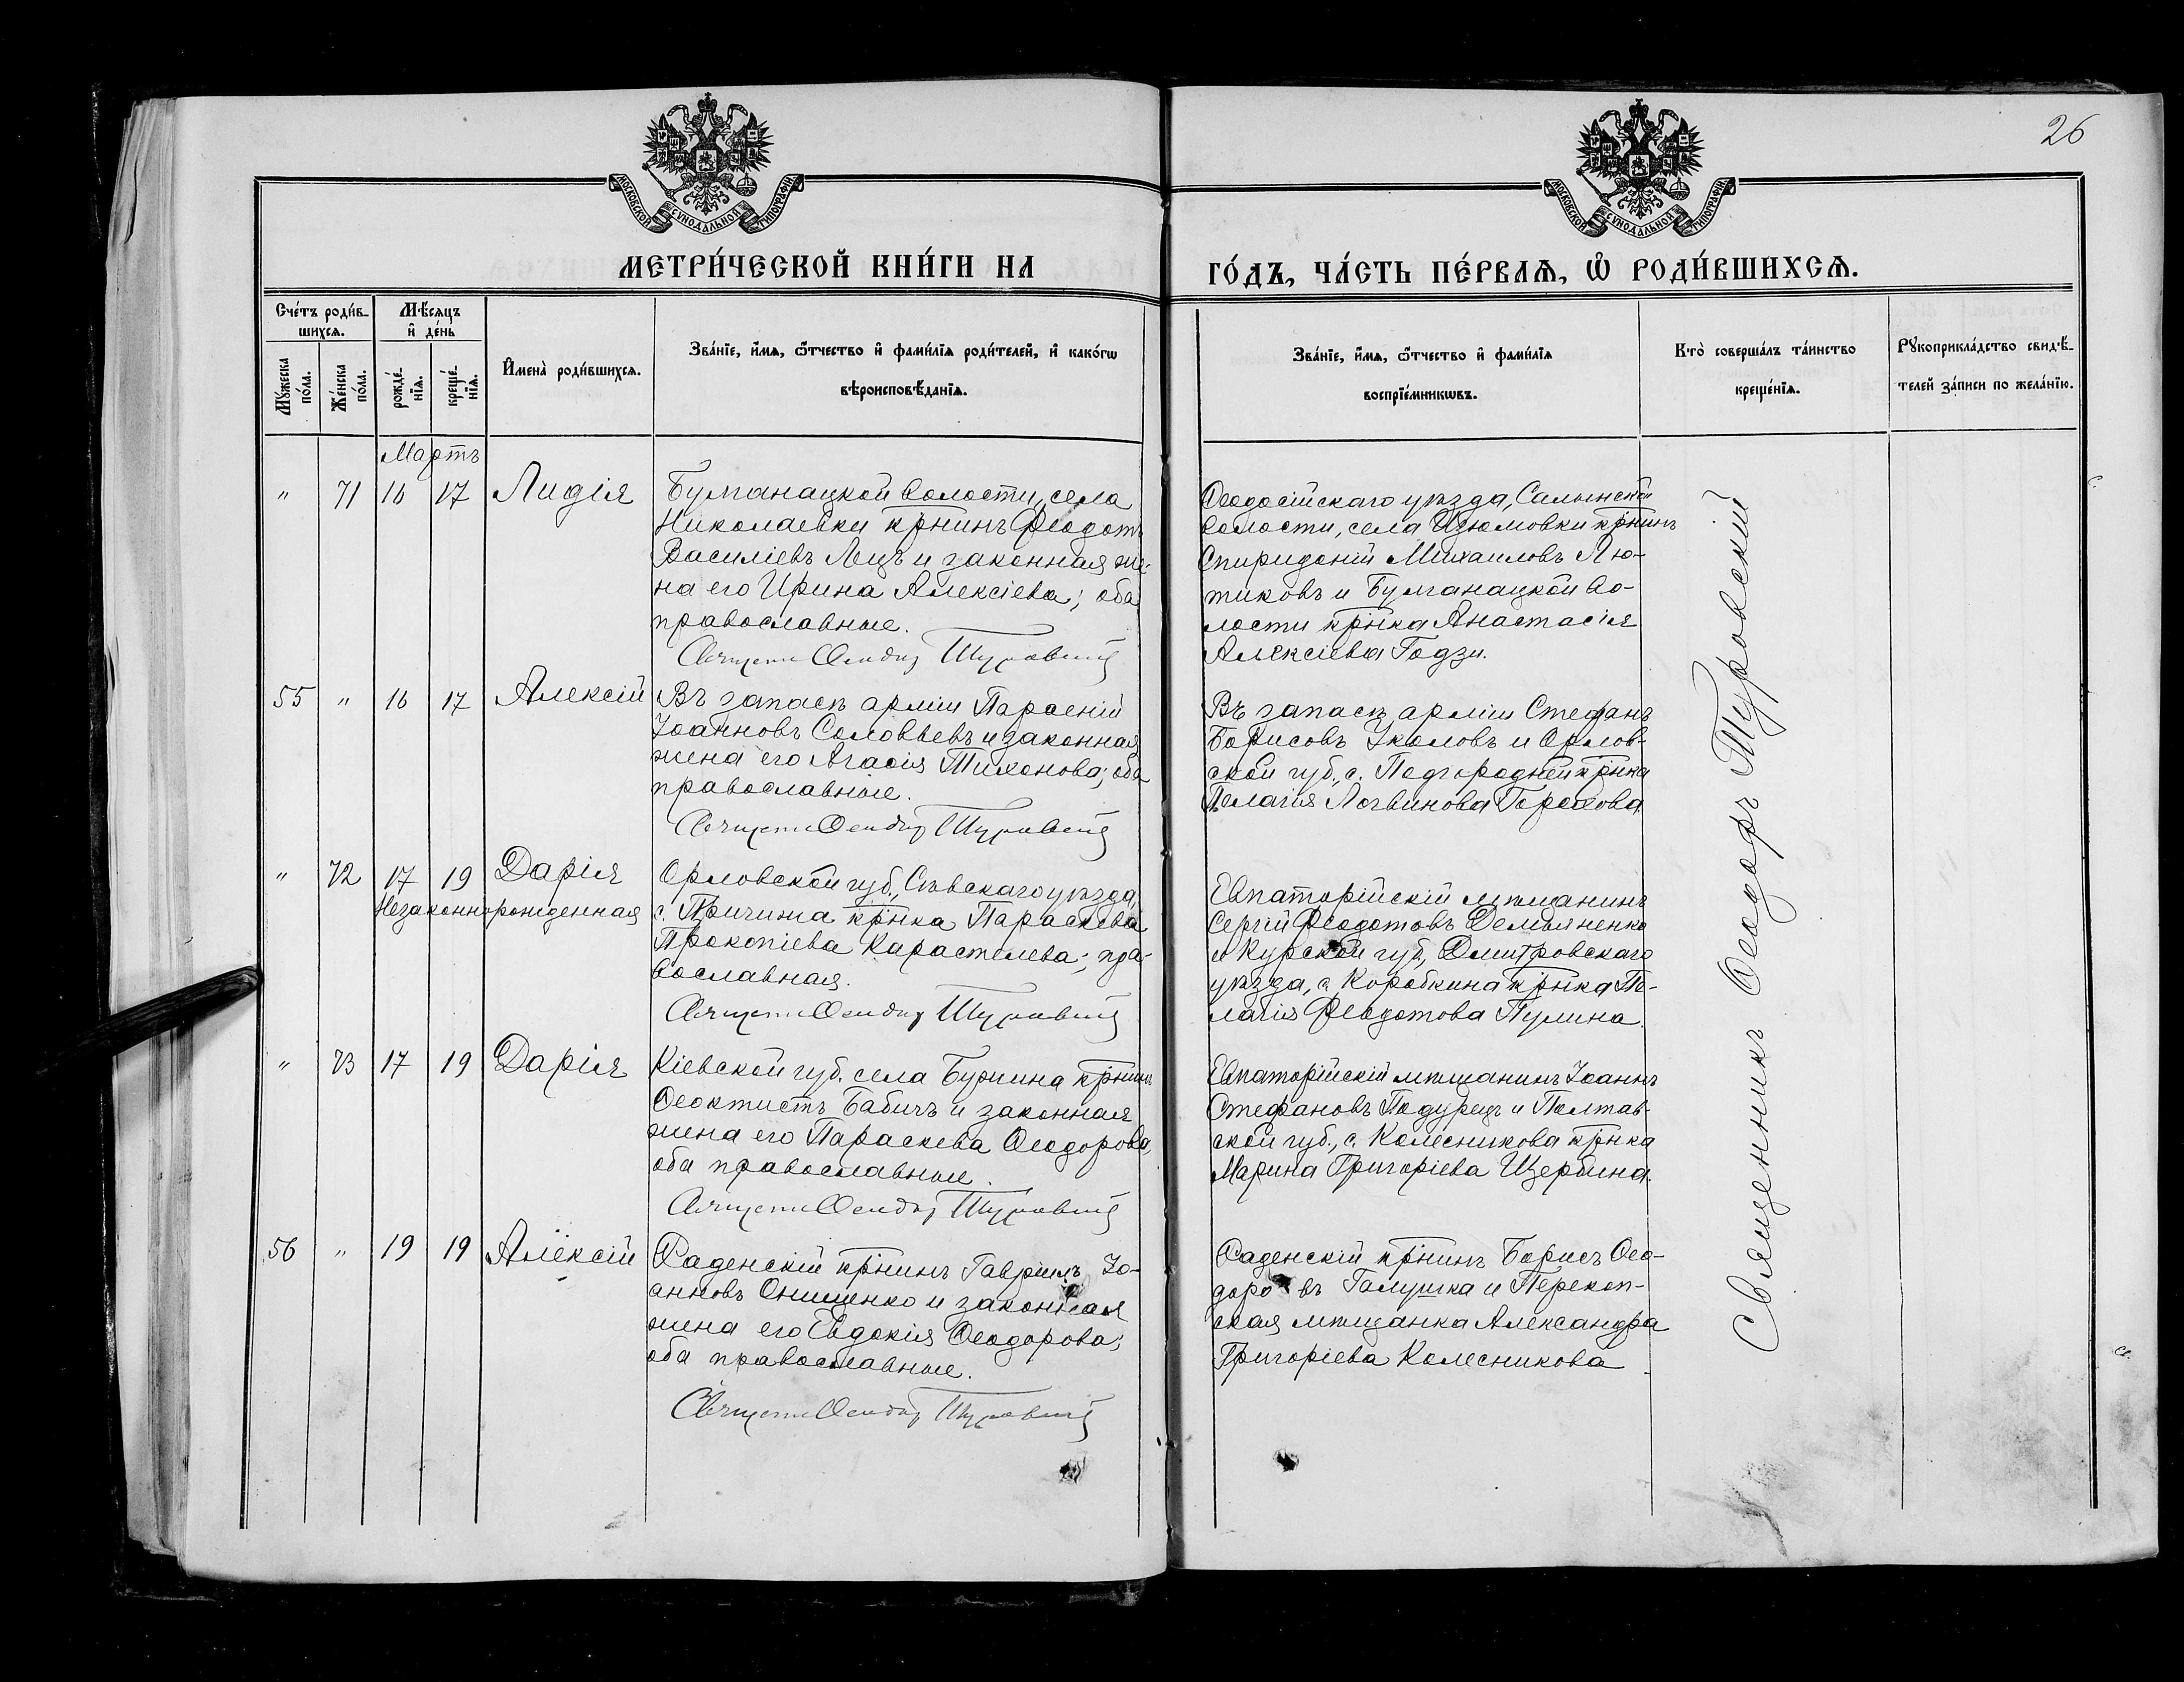 26
МОСКОВСКОЙ СѴНОДАЛЬНОЙ ТИПОГРАФІИ
МОСКОВСКОЙ СѴНОДАЛЬНОЙ ТИПОГРАФІИ
МЕТРИ́ЧЕСКОЙ КНИ́ГИ НА
ГО́ДЪ, ЧА́СТЬ ПЕ́РВАѦ, Ѡ҆ РОДИ́ВШИХСѦ.
Сче́тъ роди́в-
шихсѧ.
Мꙋ́жеска по́ла.
Же́нска по́ла.
Мѣ́сѧцъ
и҆ де́нь
рожде́-
нїѧ.
креще́-
нїѧ.
И҆мена̀ роди́вшихсѧ.
Зва́нїе, и҆́мѧ, ѻ҆́тчество и҆ фами́лїѧ роди́телей, и҆ како́гѡ
вѣроисповѣ́данїѧ.
Зва́нїе, и҆́мѧ, ѻ҆́тчество и҆ фами́лїѧ
воспрїе́мникѡвъ.
Кто̀ соверша́лъ та́инство
креще́нїѧ.
Рꙋкоприкла́дство свидѣ́-
телей за́писи по жела́нїю.
Мартъ
" 71 16 17 Лидія
Булганацкой волости, села
Николаевки крнинъ Ѳеодотъ
Василіевъ Лецъ и законная же-
на его Ирина Алексіева; оба
православные.
Священ Ѳеодор Туровский
Ѳеодосійскаго уѣзда, Салынской
волости, села Изюмовки крнинъ
Спиридоній Михаиловъ Лю-
тиковъ и Булганацкой во-
лости крнка Анастасія
Алексіева Годзи.
55 " 16 17 Алексій
Въ запасѣ арміи Парѳеній
Іоанновъ Соловьевъ и законная
жена его Агаѳія Тихонова; оба
православные.
Священ Ѳеодор Туровский
Въ запасѣ арміи Стефанъ
Борисовъ Уколовъ и Орлов-
ской губ., с. Подгородней крнка
Пелагія Логвинова Горохова.
" 72 17 19 Дарія
Незаконнорожденная
Орловской губ., Сѣвскаго уѣзда,
с. Причижа крнка Параскева
Прокопіева Карастелева; пра-
вославная.
Священ Ѳеодор Туровский
Евпаторійскій мѣщанинъ
Сергій Ѳеодотовъ Демьяненко
и Курской губ., Дмитровскаго
уѣзда, с. Коробкина крнка Пе-
лагія Ѳеодотова Пулина.
" 73 17 19 Дарія
Кіевской губ. села Буркина крнинъ
Ѳеоктистъ Бабичъ и законная
жена его Параскева Ѳеодорова,
оба православные.
Священ Ѳеодор Туровский
Евпаторійскій мѣщанинъ Іоаннъ
Стефановъ Подурецъ и Полтав-
ской губ., с. Колесникова крнка
Марина Григоріева Щербина.
56 " 19 19 Алексій
Раденскій крнинъ Гавріилъ Іо-
анновъ Онищенко и законная
жена его Евдокія Ѳеодорова;
оба православные.
Священ Ѳеодор Туровский
Раденскій крнинъ Борисъ Ѳео-
доровъ Галушка и Перекоп-
ская мѣщанка Александра
Григоріева Колесникова
Священникъ Ѳеодоръ Туровскій